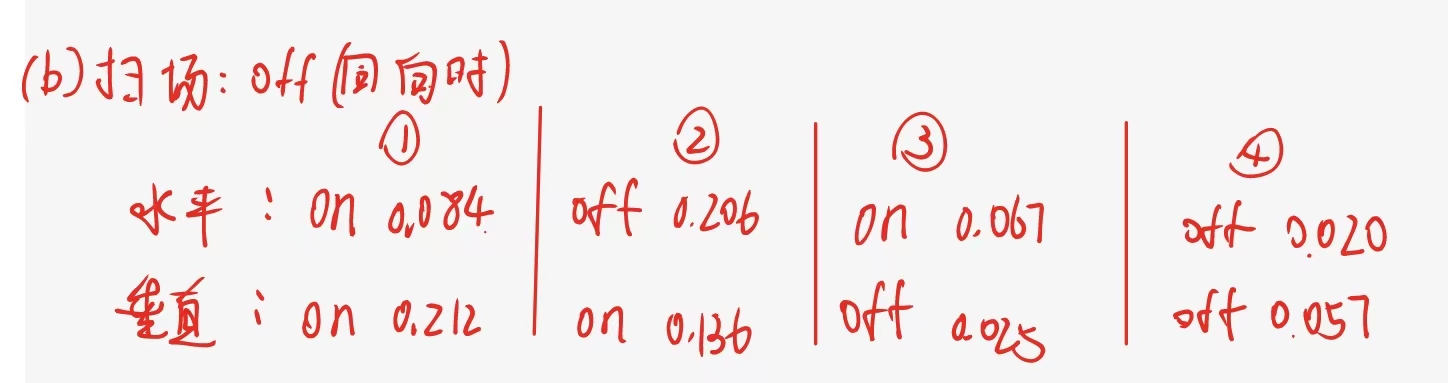 (b)扫场: off(同向时)
① ② ③ ④
水平: on 0.084 off 0.206 on 0.067 off 0.020
垂直: on 0.212 on 0.136 off 0.025 off 0.057